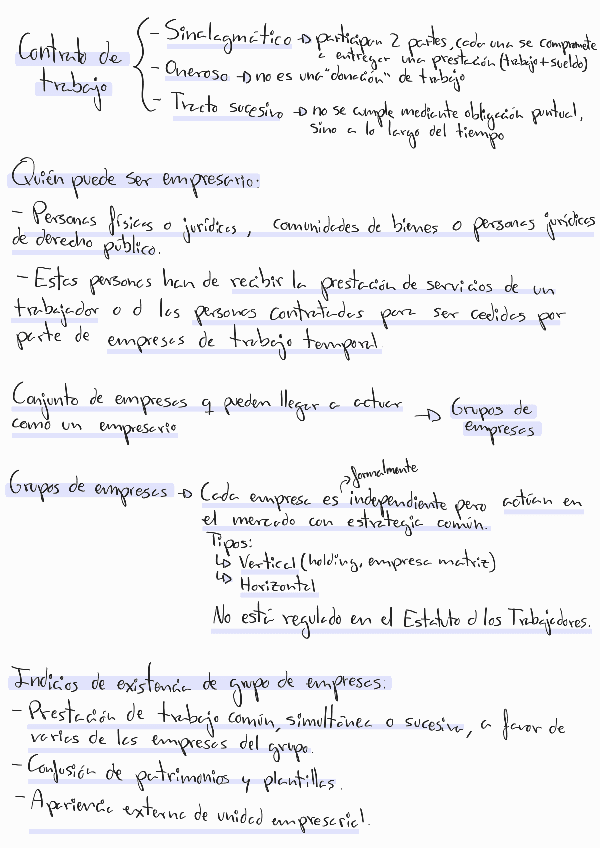 Contrato de trabajo
- Sinalagmático → participan 2 partes, cada una se compromete
a entregar una prestación (trabajo + sueldo)
- Oneroso → no es una "donación" de trabajo
- Tracto sucesivo → no se cumple mediante obligación puntual,
sino a lo largo del tiempo
Quién puede ser empresario:
- Personas físicas o jurídicas, comunidades de bienes o personas jurídicas
de derecho público.
- Estas personas han de recibir la prestación de servicios de un
trabajador o d las personas contratadas para ser cedidas por
parte de empresas de trabajo temporal
Conjunto de empresas q pueden llegar a actuar
como un empresario
→ Grupos de
empresas
formalmente
Grupos de empresas → Cada empresa es independiente pero actúan en
el mercado con estrategia común.
Tipos:
↳ Vertical (holding, empresa matriz)
↳ Horizontal
No está regulado en el Estatuto d los Trabajadores.
Indicios de existencia de grupo de empresas:
- Prestación de trabajo común, simultánea o sucesiva, a favor de
varias de las empresas del grupo.
- Confusión de patrimonios y plantillas.
- Apariencia externa de unidad empresarial.